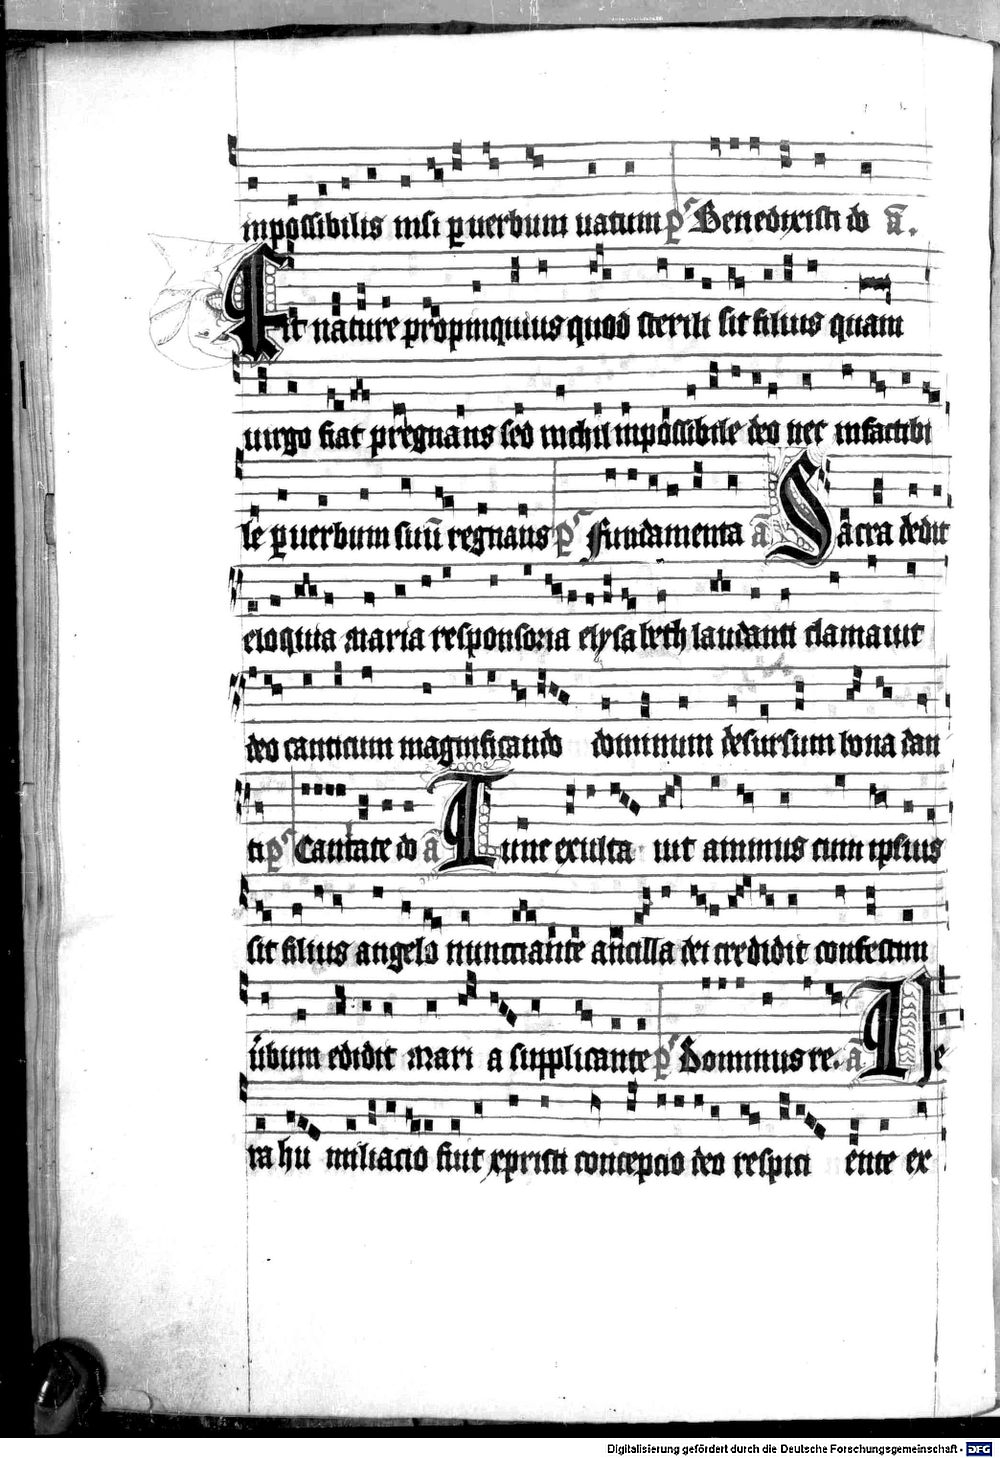 inpossibilis nisi p uerbum uatum pˢ Benedixisti do a̅.
Fit nature propinquius quod sterili sit filius quam
uirgo fiat pregnans sed nichil inpossibile deo nec infactibi
le p uerbum suu̅ regnans pˢ Fundamenta a̅ Sacra dedit
eloquia maria responsoria elysabeth laudanti clamauit
deo canticum magnificando dominum desursum bona dan
ti pˢ Cantate do a̅ Tunc exulta uit animus cum ipsius
sit filius angelo nuncciante ancilla dei credidit confestim
u̅bum edidit Mari a supplicante pˢ Dominus re. a̅ Ue
ra hu miliacio fiut xpristi concepcio deo respici ente ex
Digitalisierung gefördert durch die Deutsche Forschungsgemeinschaft - DFG